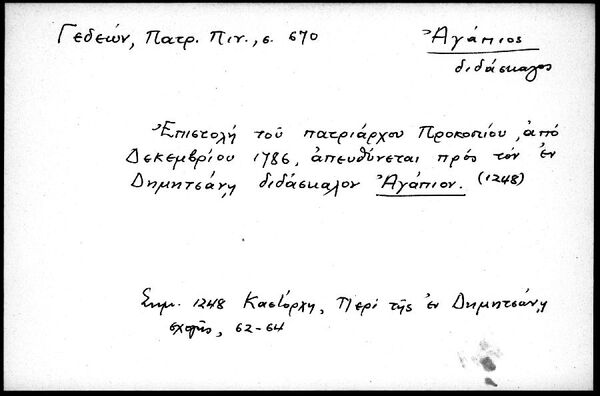 Γεδεών, Πατρ. Πιν., σ. 670
Ἀγάπιος
διδάσκαλος
Ἐπιστολή τοῦ πατριάρχου Προκοπίου, ἀπό
Δεκεμβρίου 1786, ἀπευθύνεται πρός τόν ἐν
Δημητσάνῃ διδάσκαλον Ἀγάπιον. (1248)
Σημ. 1248 Καστόρχη, Περί τῆς ἐν Δημητσάνῃ
σχολῆς, 62-64